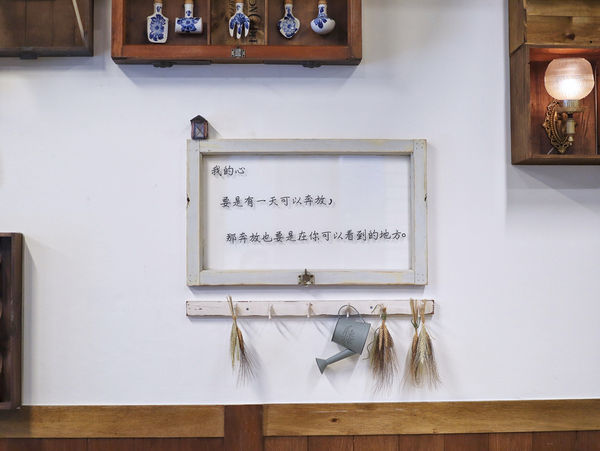 我的心
要是有一天可以奔放，
那奔放也要是在你可以看到的地方。